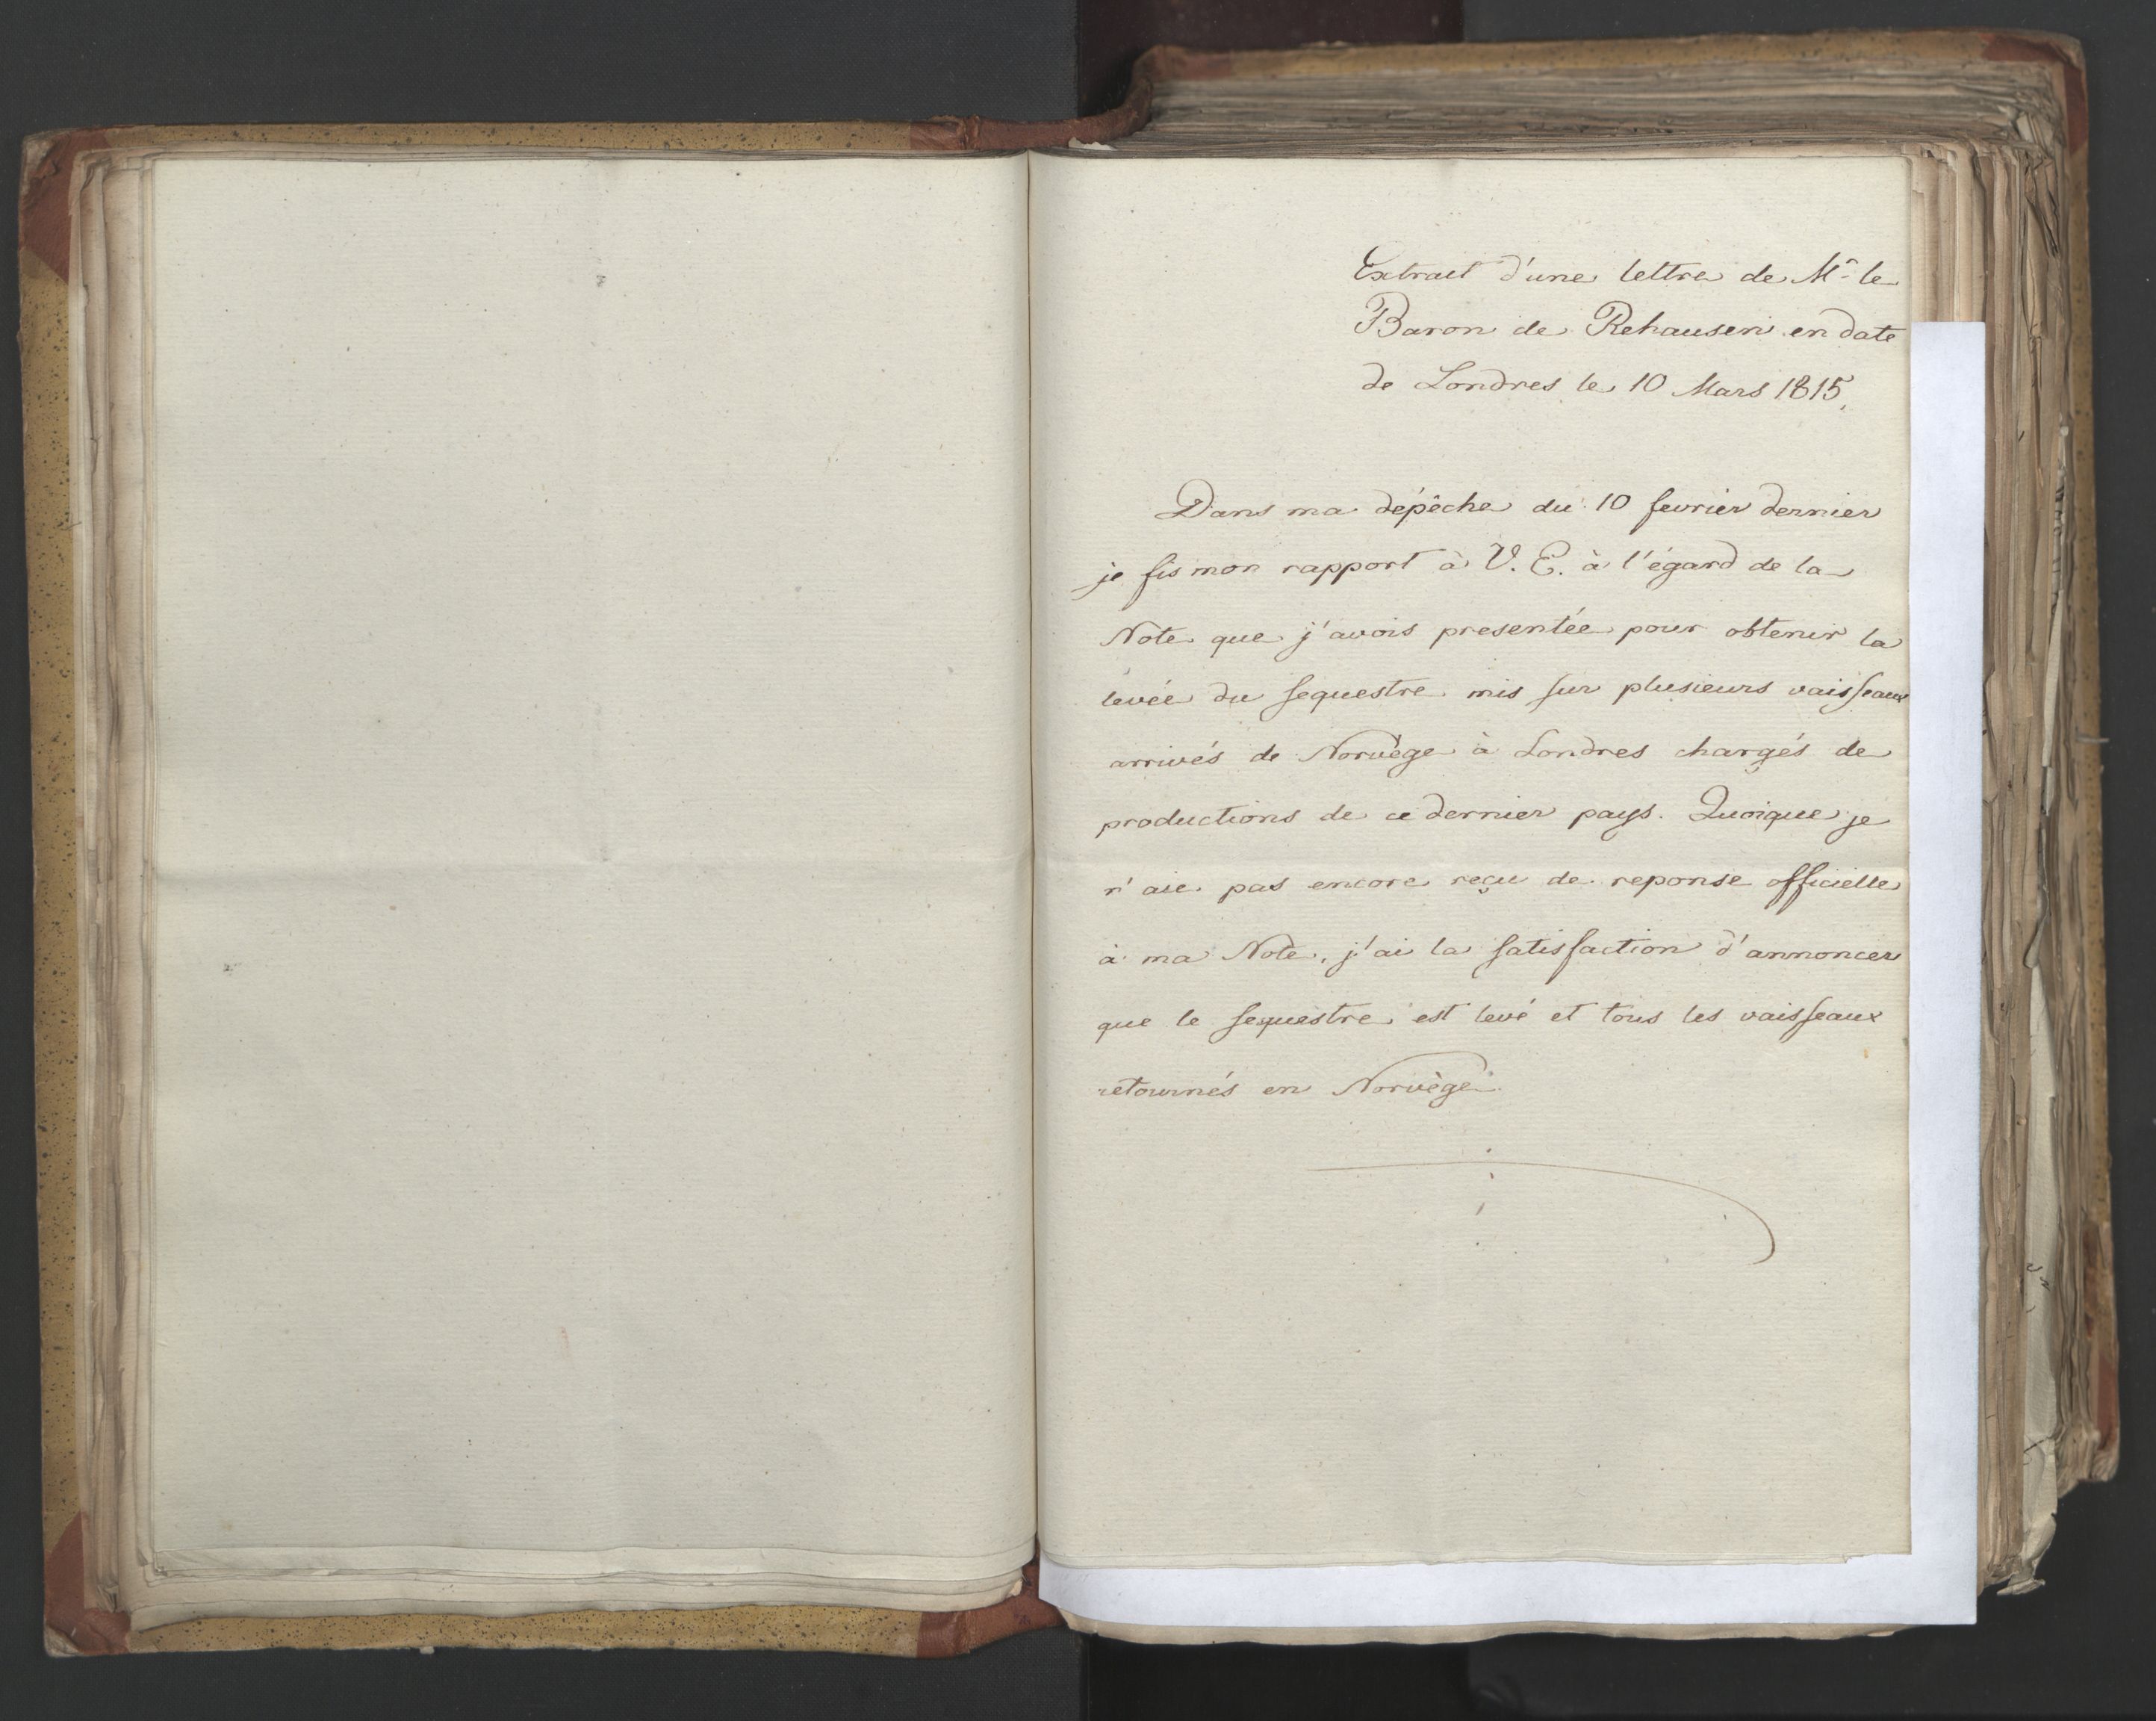 Extrait d'une lettre de Mr le
Baron de Rehausen en date
de Londres le 10 Mars 1815,
Dans ma dépêche du 10 fevrier dernier
je fis mon rapport à V. E. à l'égard de la
Note que j'avois presentée pour obtenir la
levée du sequestre mis sur plusieurs vaisseaux
arrivés de Norvège à Londres chargés de
productions de ce dernier pays. Quoique je
n'aie pas encore reçu de reponse officielle
à ma Note, j'ai la satisfaction d'annoncer
que le sequestre est levé et tous les vaisseaux
retournés en Norvège.